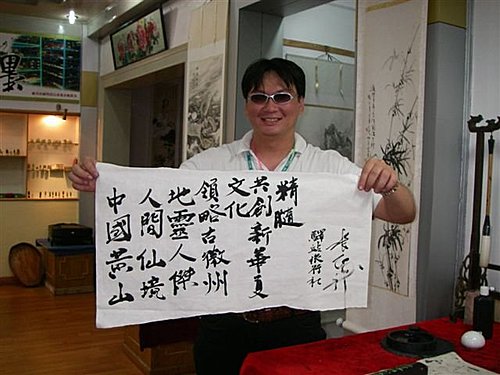 中國黄山
人間仙境
地靈人傑
領略古徽州
文化
共創新華夏
精髓
驛站旅行社